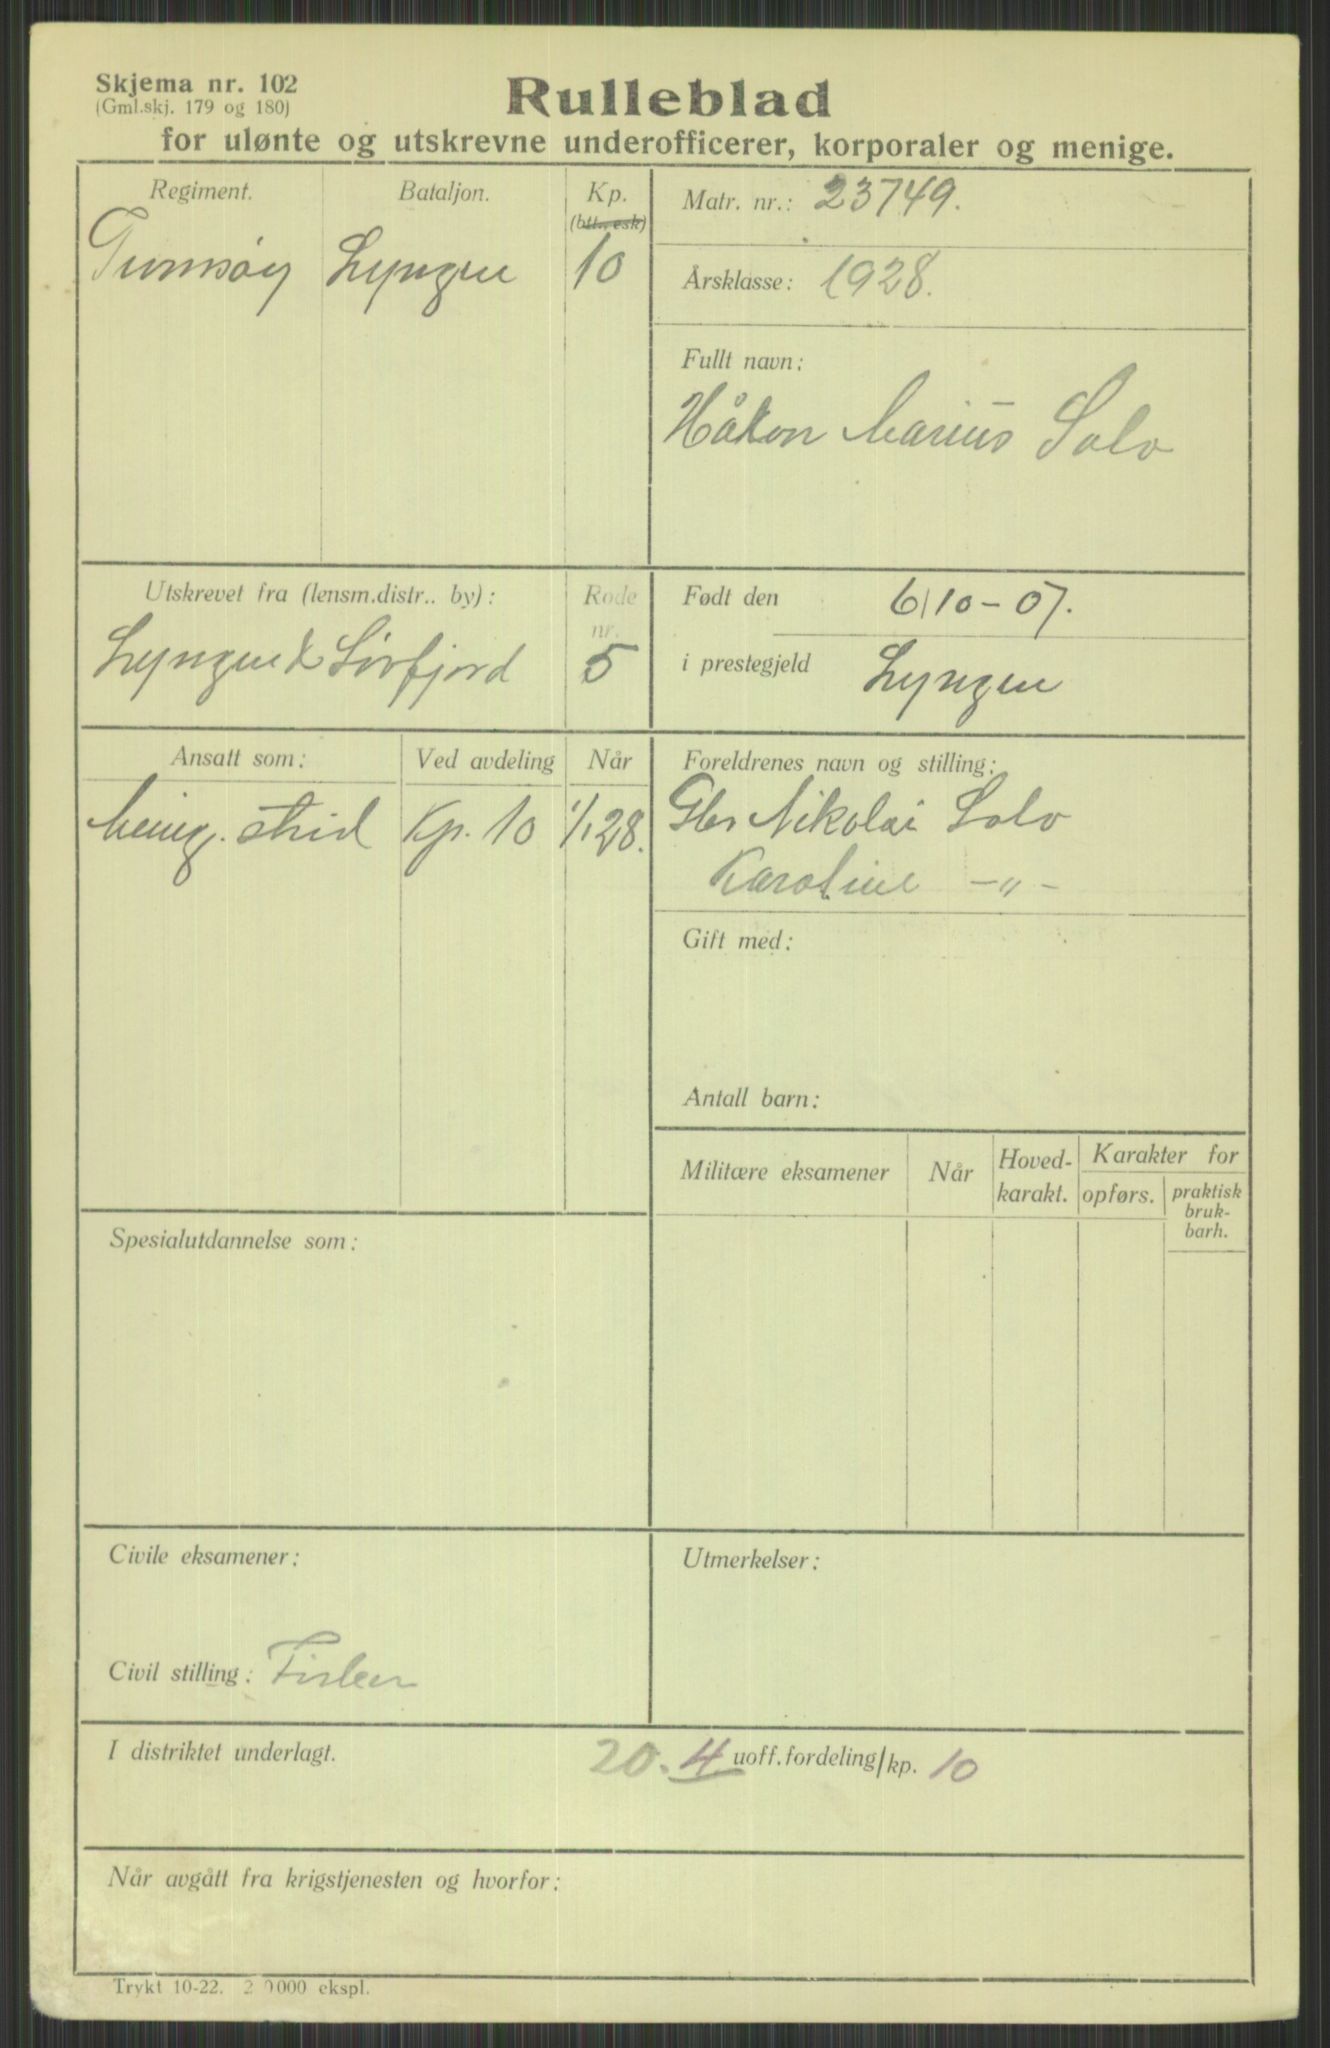 Skjema nr. 102
(Gml.skj. 179 og 180)
Rulleblad
for ulønte og utskrevne underofficerer, korporaler og menige.
Regiment.
Bataljon.
Kp.
(btt., esk)
Tromsøy
Lyngen
10
Matr. nr.: 23749.
Årsklasse: 1928.
Fullt navn:
Håkon Marius Solv
Utskrevet fra (lensm.distr.. by):
Rode
nr.
Lyngen & Sörfjord
5
Født den 6/10-07.
i prestegjeld Lyngen
Ansatt som:
Ved avdeling
Når
Menig. strid
Kp. 10
1/1 28.
Foreldrenes navn og stilling:
Gbr Nikolai Solv
Karoline -"-
Gift med:
Antall barn:
Militære eksamener
Når
Hoved-
karakt.
Karakter for
opførs.
praktisk
bruk-
barh.
Spesialutdannelse som:
Civile eksamener:
Civil stilling: Fisker
Utmerkelser:
I distriktet underlagt. 20. 4 uoff.fordeling/kp. 10
Når avgått fra krigstjenesten og hvorfor:
Trykt 10-22. 2 0000 ekspl.